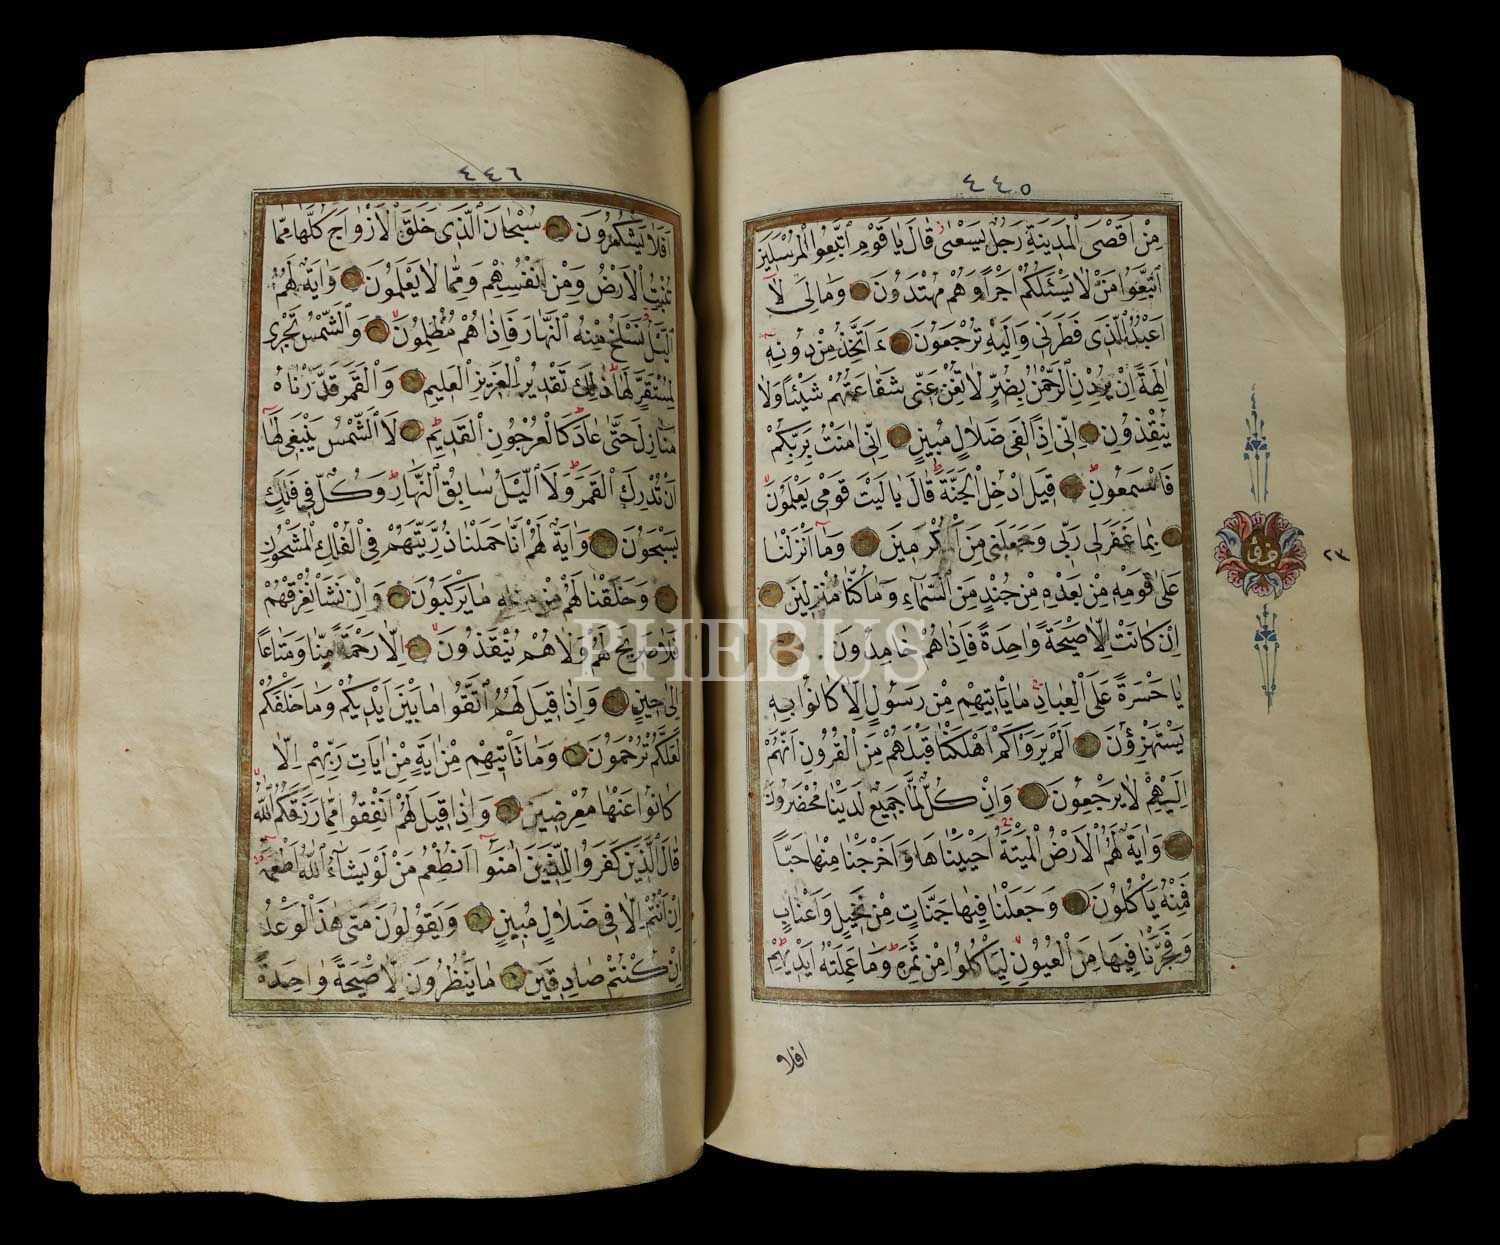 ٤٤٥
مِنْ اَقْصَى الْمَدِينَةِ رَجُلٌ يَسْعٰى قَالَ يَا قَوْمِ اتَّبِعُوا الْمُرْسَلِينَ
اِتَّبِعُوا مَنْ لَا يَسْئَلُكُمْ اَجْرًا وَهُمْ مُهْتَدُونَ وَمَا لِىَ لَٓا
اَعْبُدُ الَّذِى فَطَرَنِى وَاِلَيْهِ تُرْجَعُونَ ءَاَتَّخِذُ مِنْ دُونِهِٓ
اٰلِهَةً اِنْ يُرِدْنِ الرَّحْمٰنُ بِضُرٍّ لَا تُغْنِ عَنِّى شَفَاعَتُهُمْ شَيْئًا وَلَا
يُنْقِذُونِ اِنِّى اِذًا لَفِى ضَلَالٍ مُبِينٍ اِنِّى اٰمَنْتُ بِرَبِّكُمْ
فَاسْمَعُونِ قِيلَ ادْخُلِ الْجَنَّةَ قَالَ يَا لَيْتَ قَوْمِى يَعْلَمُونَ
بِمَا غَفَرَ لِى رَبِّى وَجَعَلَنِى مِنَ الْمُكْرَمِينَ وَمَٓا اَنْزَلْنَا
عَلٰى قَوْمِهِ مِنْ بَعْدِهِ مِنْ جُنْدٍ مِنَ السَّمَٓاءِ وَمَا كُنَّا مُنْزِلِينَ
اِنْ كَانَتْ اِلَّا صَيْحَةً وَاحِدَةً فَاِذَا هُمْ خَامِدُونَ
يَا حَسْرَةً عَلَى الْعِبَادِ مَا يَأْتِيهِمْ مِنْ رَسُولٍ اِلَّا كَانُوا بِهِ
يَسْتَهْزِؤُنَ اَلَمْ يَرَوْا كَمْ اَهْلَكْنَا قَبْلَهُمْ مِنَ الْقُرُونِ اَنَّهُمْ
اِلَيْهِمْ لَا يَرْجِعُونَ وَاِنْ كُلٌّ لَمَّا جَمِيعٌ لَدَيْنَا مُحْضَرُونَ
وَاٰيَةٌ لَهُمُ الْاَرْضُ الْمَيْتَةُ اَحْيَيْنَاهَا وَاَخْرَجْنَا مِنْهَا حَبًّا
فَمِنْهُ يَأْكُلُونَ وَجَعَلْنَا فِيهَا جَنَّاتٍ مِنْ نَخِيلٍ وَاَعْنَابٍ
وَفَجَّرْنَا فِيهَا مِنَ الْعُيُونِ لِيَأْكُلُوا مِنْ ثَمَرِهِ وَمَا عَمِلَتْهُ اَيْدِيهِمْ
افلا
٢٣
٤٤٦
اَفَلَا يَشْكُرُونَ سُبْحَانَ الَّذِى خَلَقَ الْاَزْوَاجَ كُلَّهَا مِمَّا
تُنْبِتُ الْاَرْضُ وَمِنْ اَنْفُسِهِمْ وَمِمَّا لَا يَعْلَمُونَ وَاٰيَةٌ لَهُمُ
الَّيْلُ نَسْلَخُ مِنْهُ النَّهَارَ فَاِذَا هُمْ مُظْلِمُونَ وَالشَّمْسُ تَجْرِى
لِمُسْتَقَرٍّ لَهَا ذٰلِكَ تَقْدِيرُ الْعَزِيزِ الْعَلِيمِ وَالْقَمَرَ قَدَّرْنَاهُ
مَنَازِلَ حَتّٰى عَادَ كَالْعُرْجُونِ الْقَدِيمِ لَا الشَّمْسُ يَنْبَغِى لَهَٓا
اَنْ تُدْرِكَ الْقَمَرَ وَلَا الَّيْلُ سَابِقُ النَّهَارِ وَكُلٌّ فِى فَلَكٍ
يَسْبَحُونَ وَاٰيَةٌ لَهُمْ اَنَّا حَمَلْنَا ذُرِّيَّتَهُمْ فِى الْفُلْكِ الْمَشْحُونِ
وَخَلَقْنَا لَهُمْ مِنْ مِثْلِهِ مَا يَرْكَبُونَ وَاِنْ نَشَأْ نُغْرِقْهُمْ
فَلَا صَرِيخَ لَهُمْ وَلَا هُمْ يُنْقَذُونَ اِلَّا رَحْمَةً مِنَّا وَمَتَاعًا
اِلٰى حِينٍ وَاِذَا قِيلَ لَهُمُ اتَّقُوا مَا بَيْنَ اَيْدِيكُمْ وَمَا خَلْفَكُمْ
لَعَلَّكُمْ تُرْحَمُونَ وَمَا تَأْتِيهِمْ مِنْ اٰيَةٍ مِنْ اٰيَاتِ رَبِّهِمْ اِلَّا
كَانُوا عَنْهَا مُعْرِضِينَ وَاِذَا قِيلَ لَهُمْ اَنْفِقُوا مِمَّا رَزَقَكُمُ اللّٰهُ
قَالَ الَّذِينَ كَفَرُوا لِلَّذِينَ اٰمَنُٓوا اَنُطْعِمُ مَنْ لَوْ يَشَٓاءُ اللّٰهُ اَطْعَمَهُ
اِنْ اَنْتُمْ اِلَّا فِى ضَلَالٍ مُبِينٍ وَيَقُولُونَ مَتٰى هٰذَا الْوَعْدُ
اِنْ كُنْتُمْ صَادِقِينَ مَا يَنْظُرُونَ اِلَّا صَيْحَةً وَاحِدَةً
PHEBUS